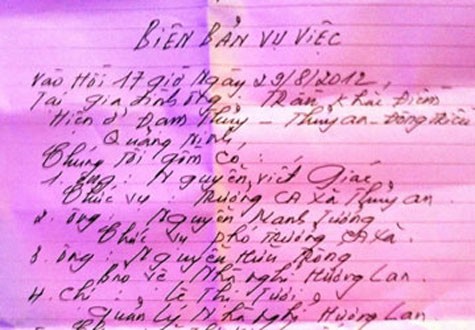 BIÊN BẢN VỤ VIỆC
Vào Hồi 17 giờ Ngày 29/8/2012,
Tại gia đình ông: Trần Khải Điềm
Hiện ở Đạm Thủy - Thủy an - Đông Triều
Quảng Ninh,
Chúng Tôi gồm có:
1. ông: Nguyễn Viết Giác
Chức vụ: Trưởng CA Xã Thủy an.
2. ông: Nguyễn Mạnh Tường
Chức vụ phó Trưởng CA xã.
3. ông: Nguyễn Hữu Trọng
bảo vệ Nhà nghỉ Hương Lan.
4. Chị: Lê Thị Tươi
Quản Lý Nhà nghỉ Hương Lan.